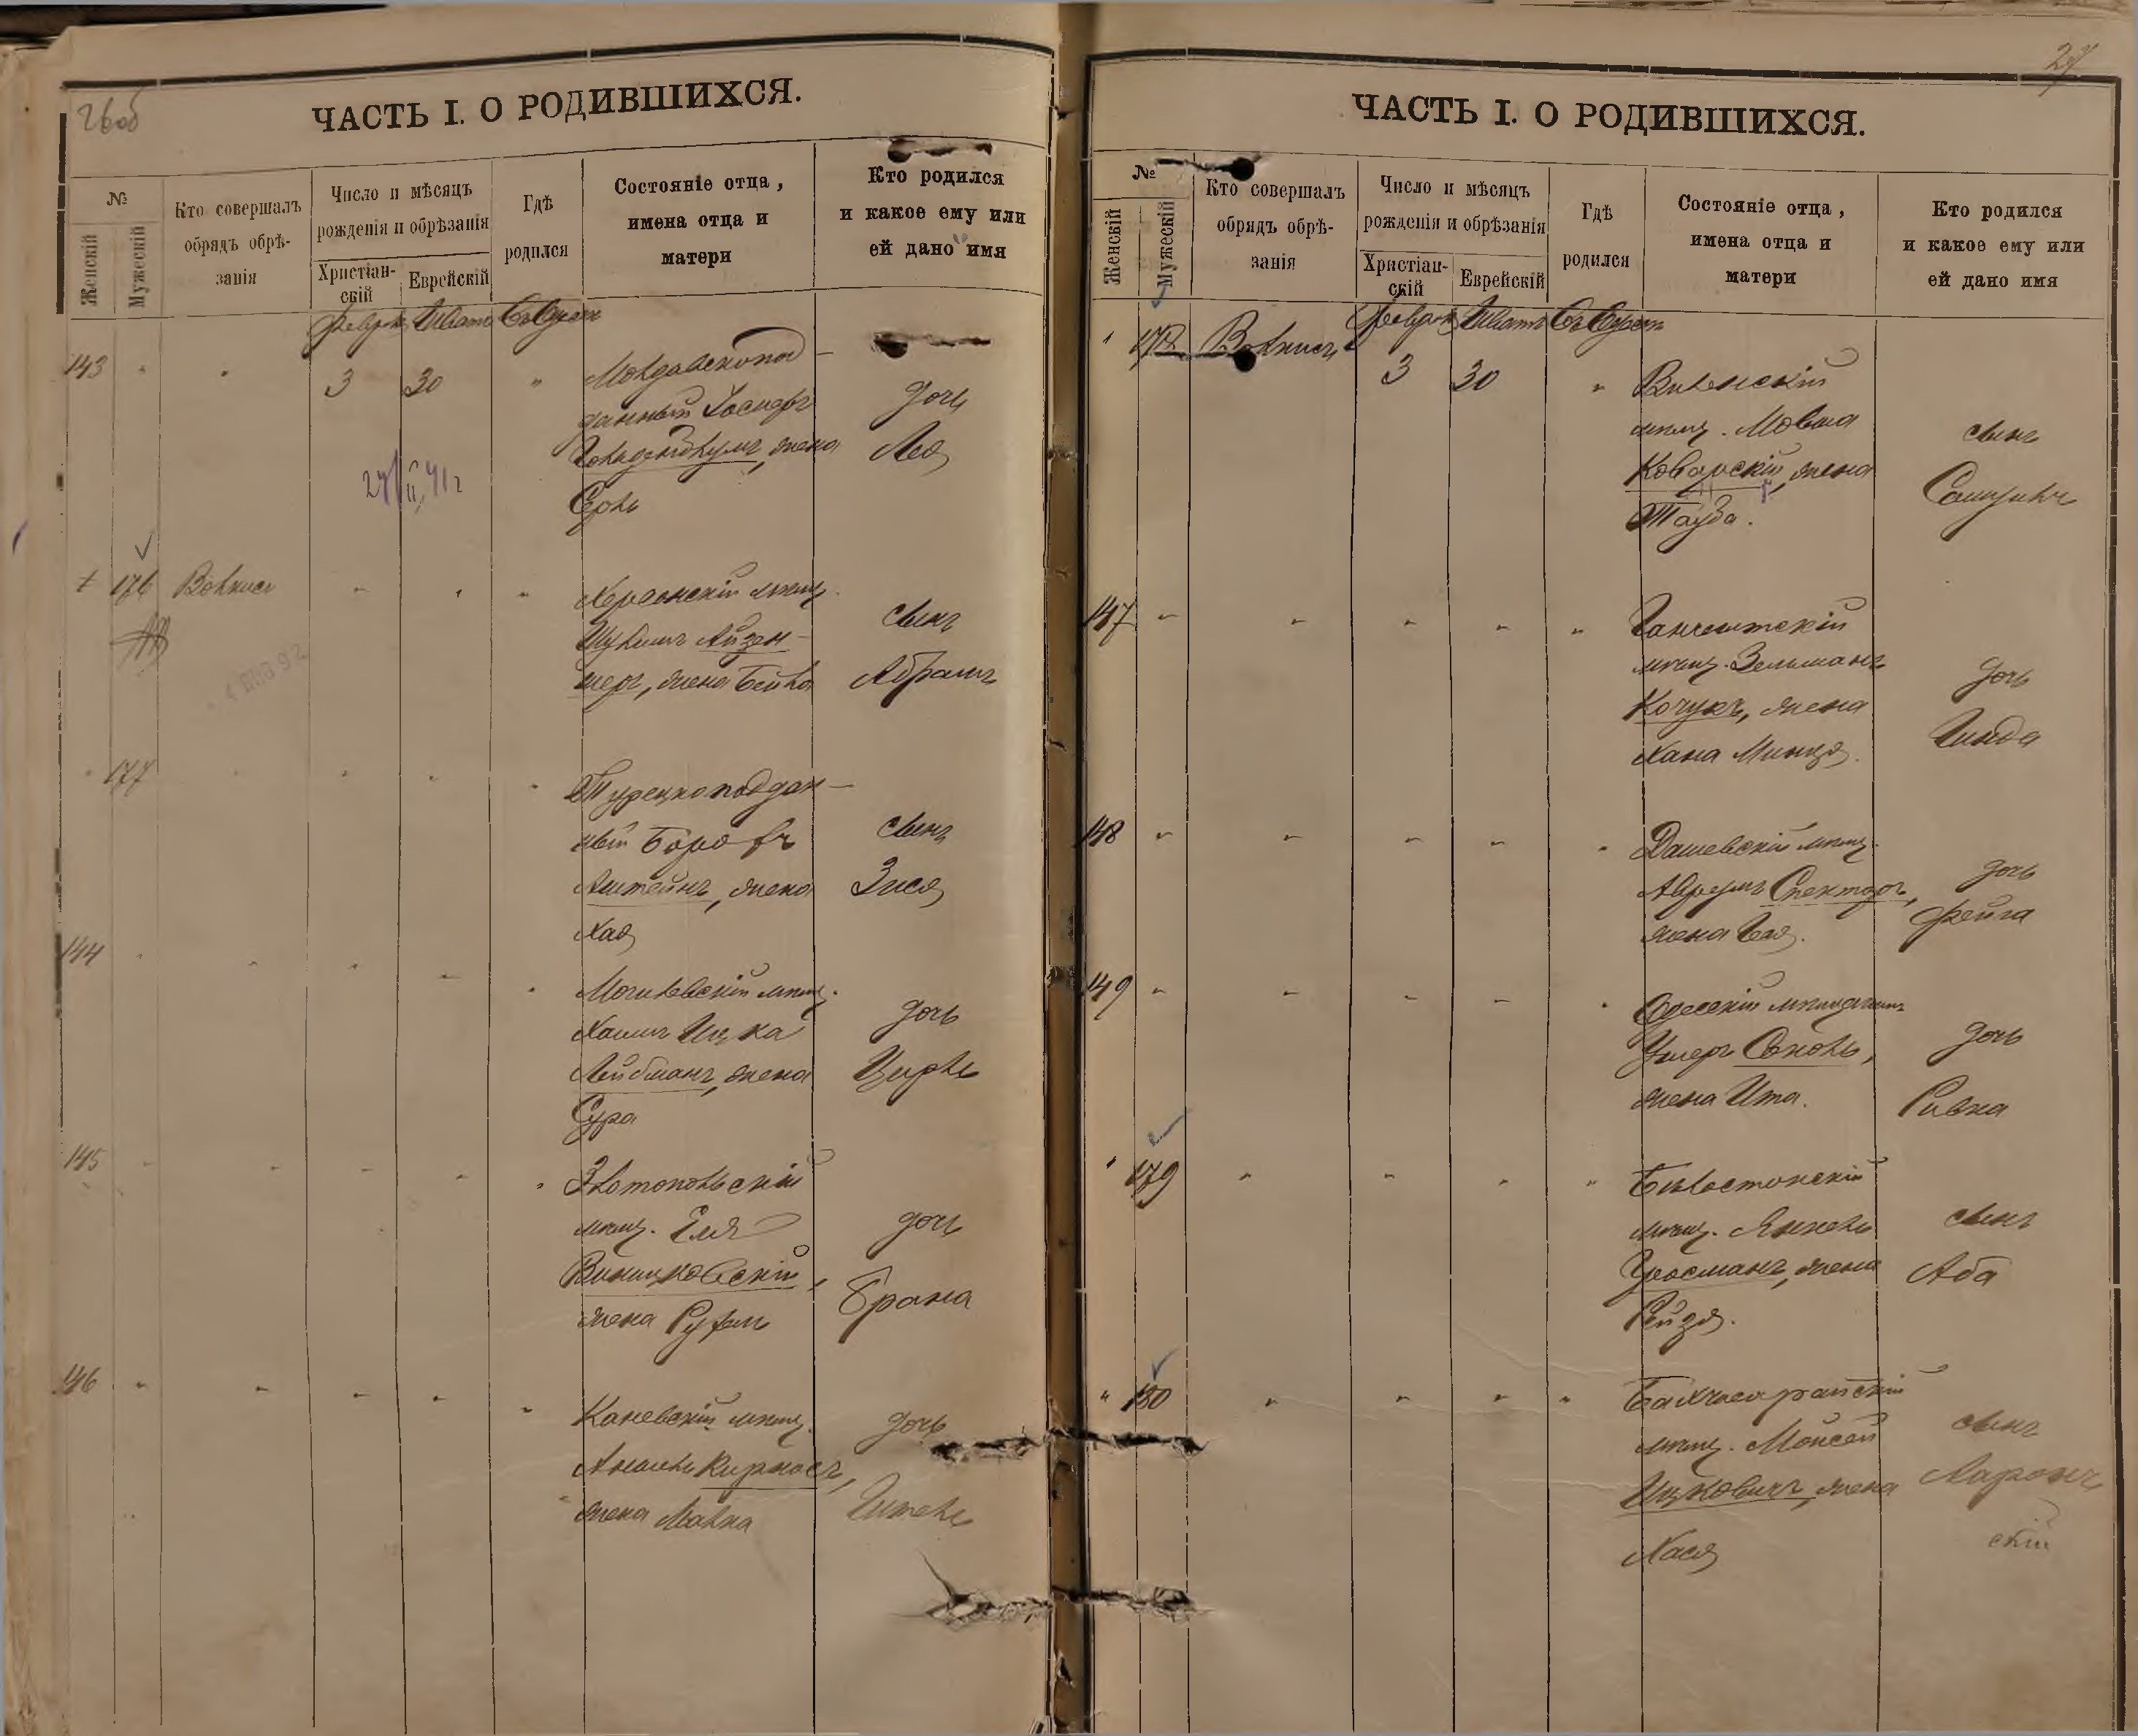 26об
ЧАСТЬ I. О РОДИВШИХСЯ.
№
Женскій
Мужескій
Кто совершалъ
обрядъ обрѣ-
занія
Число и мѣсяцъ
рожденія и обрѣзанія
Христіан-
скій
Еврейскій
Гдѣ
родился
Состояніе отца,
имена отца и
матери
Кто родился
и какое ему или
ей дано имя
143
3
30
Молдавскопод-
данный
жена
дочь
Лея
176
Волкисъ
Херсонскій мѣщ.
Айзен-
шеръ, жена Бейла
сынъ
Абрамъ
177
Турецкоподдан-
ный Борохъ
Аштейнъ, жена
Хая
сынъ
Зися
144
Могилевскій мѣщ.
Хаимъ Ицка
Лейбманъ, жена
Сура
дочь
Цирль
145
Златопольскій
мѣщ. Еля
жена Рухль
дочь
Брана
146
Каневскій мѣщ.
жена Малка
дочь
Гитель
27
ЧАСТЬ I. О РОДИВШИХСЯ.
№
Женскій
Мужескій
Кто совершалъ
обрядъ обрѣ-
занія
Число и мѣсяцъ
рожденія и обрѣзанія
Христіан-
скій
Еврейскій
Гдѣ
родился
Состояніе отца,
имена отца и
матери
Кто родился
и какое ему или
ей дано имя
178
Волкисъ
3
30
Виленскій
мѣщ. Мовша
Коварскій, жена
Тауба.
сынъ
147
Ганчештскій
мѣщ. Зельманъ
Кочукъ, жена
Хана Минця.
дочь
Гинда
148
Дашевскій мѣщ.
Аврумъ Спекторъ,
жена
дочь
Фейга
149
Одесскій мѣщанинъ
Ушеръ Соколь,
жена Ита.
дочь
Ривка
179
Бѣлостокскій
мѣщ. Янкель
Гросманъ, жена
Рейзя.
сынъ
Аба
180
Бахчисарайскій
мѣщ. Мойсей
Ицковичъ, жена
Хася
сынъ
Ааронъ